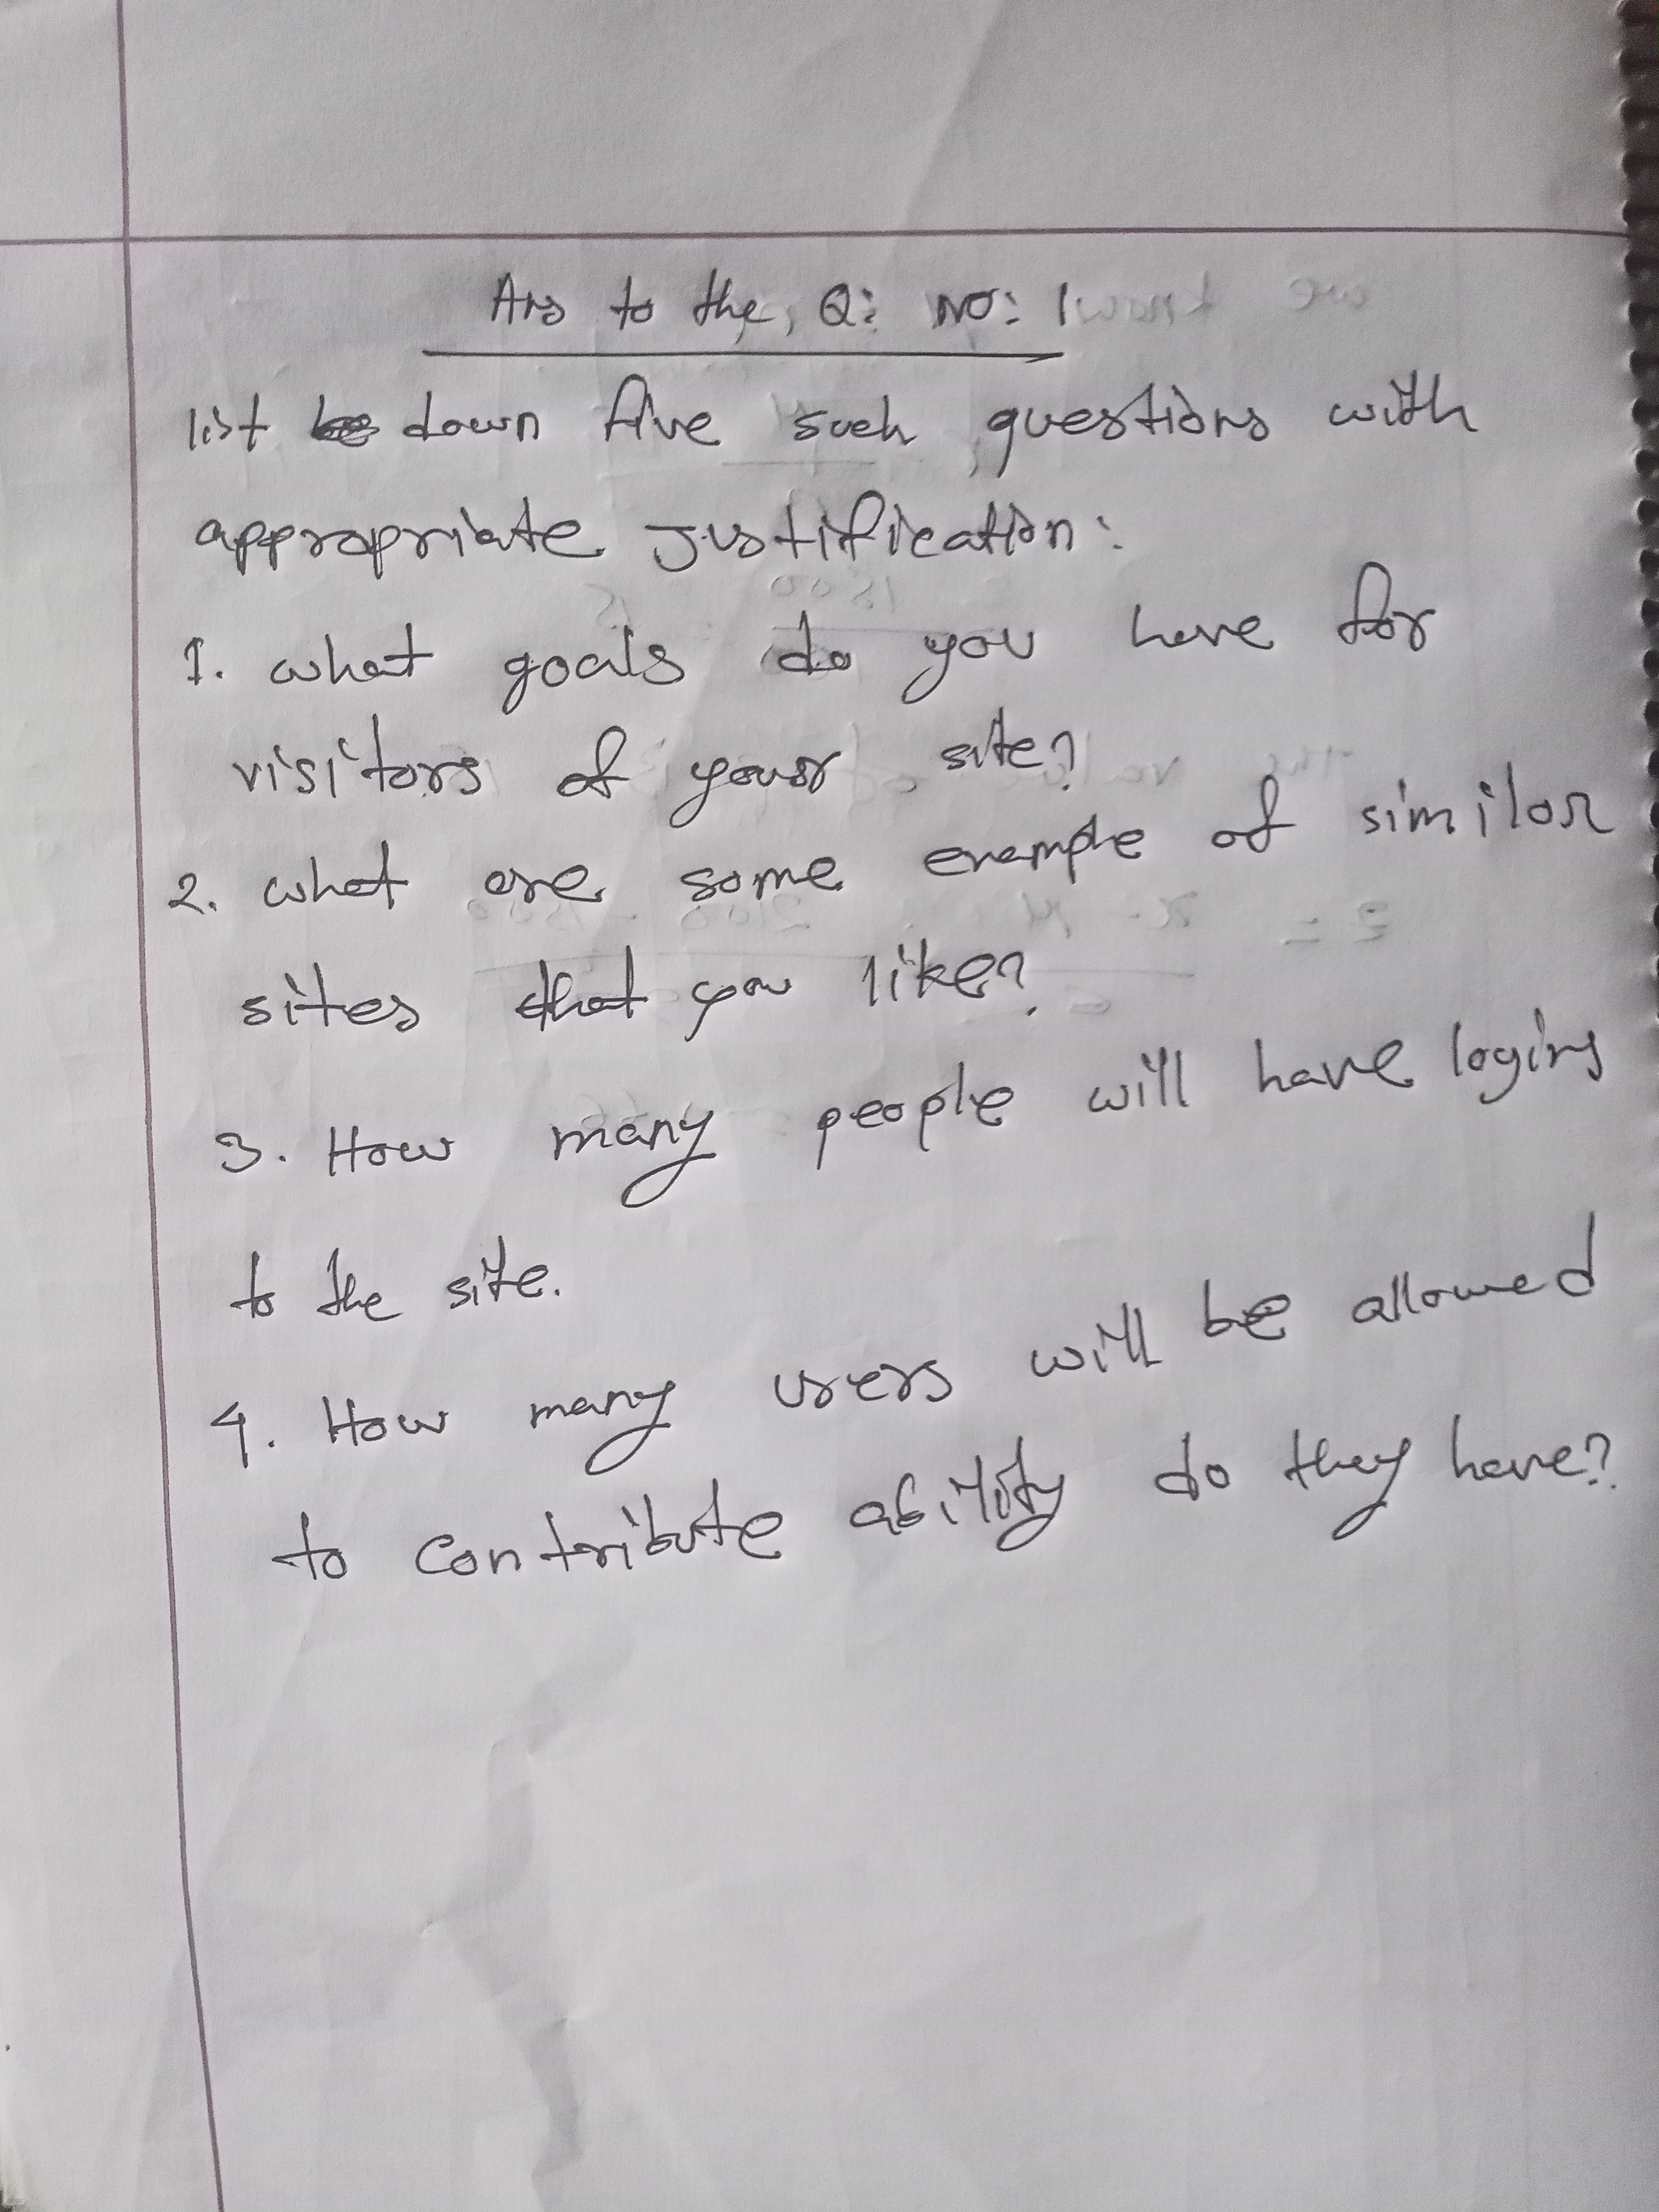 Ans to the Q: NO: 1
list down five such questions with
appropriate Justification:
1. what goals do you have for
visitors of your site?
2. what are some example of similar
sites that you like?
3. How many people will have logins
to the site.
4. How many users will be allowed
to contribute ability do they have?